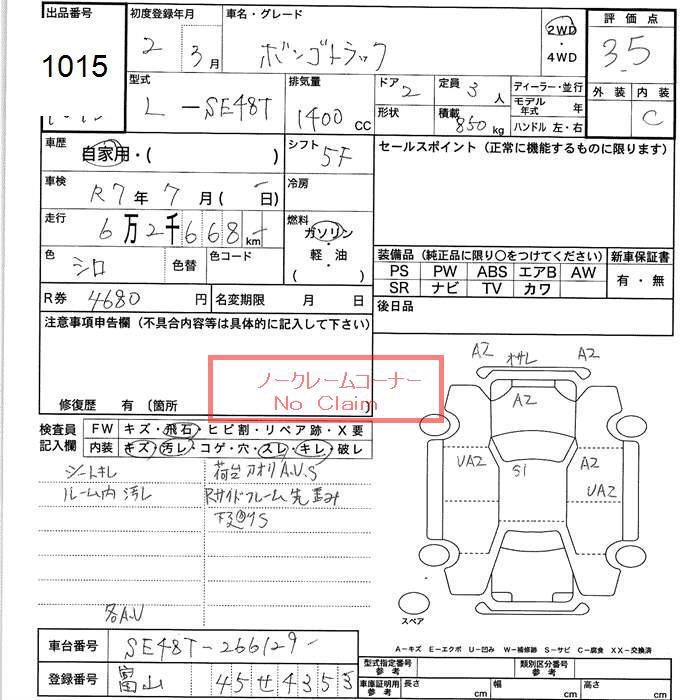 出品番号
1015
初度登録年月
2 3月
車名・グレード
ボンゴトラック
2WD
4WD
評価点
3.5
外装 内装
C
型式
L-SE48T
排気量
1400 cc
ドア 2
形状
定員 3 人
積載 850 kg
ディーラー・並行
モデル年式 年
ハンドル 左・右
車歴
自家用・( )
シフト
5F
セールスポイント(正常に機能するものに限ります)
車検
R7年7月( 日)
冷房
走行
6万2千668 km
燃料
ガソリン
軽・油
( )
色
シロ
色替
色コード
R券 4680 円
名変期限 月 日
装備品(純正品に限り〇をつけてください)
PS PW ABS エアB AW
SR ナビ TV カワ
新車保証書
有・無
後日品
注意事項申告欄(不具合内容等は具体的に記入して下さい)
修復歴 有 〔箇所
ノークレームコーナー
No Claim
検査員記入欄
FW キズ・飛石・ヒビ割・リペア跡・X要
内装 キズ・汚レ・コゲ・穴・スレ・キレ・破レ
シートキレ
ルーム内汚レ
荷台アオリA.U.S
Rサイドフレーム先歪み
下廻りS
各A.U
A2 オサレ A2
A2
UA2
S1
A2
UA2
スペア
A-キズ E-エクボ U-凹み W-補修跡 S-サビ C-腐食 XX-交換済
車台番号
SE48T-266129-
登録番号
富山 45せ4353
型式指定番号
参考
類別区分番号
参考
車庫証明用
参考
長さ cm
幅 cm
高さ cm